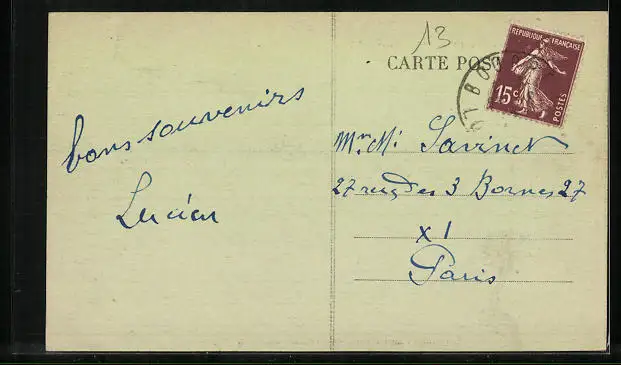 13
CARTE POS
REPUBLIQUE FRANÇAISE
15c
POSTES
bons souvenirs
Lucien
Savinet
27 rue des 3 Bornes 27
XI
Paris